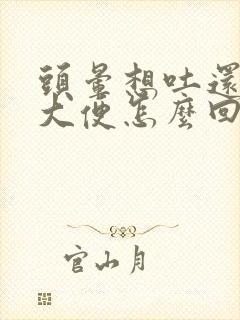 頭暈想吐還
大便怎麼回
官山月